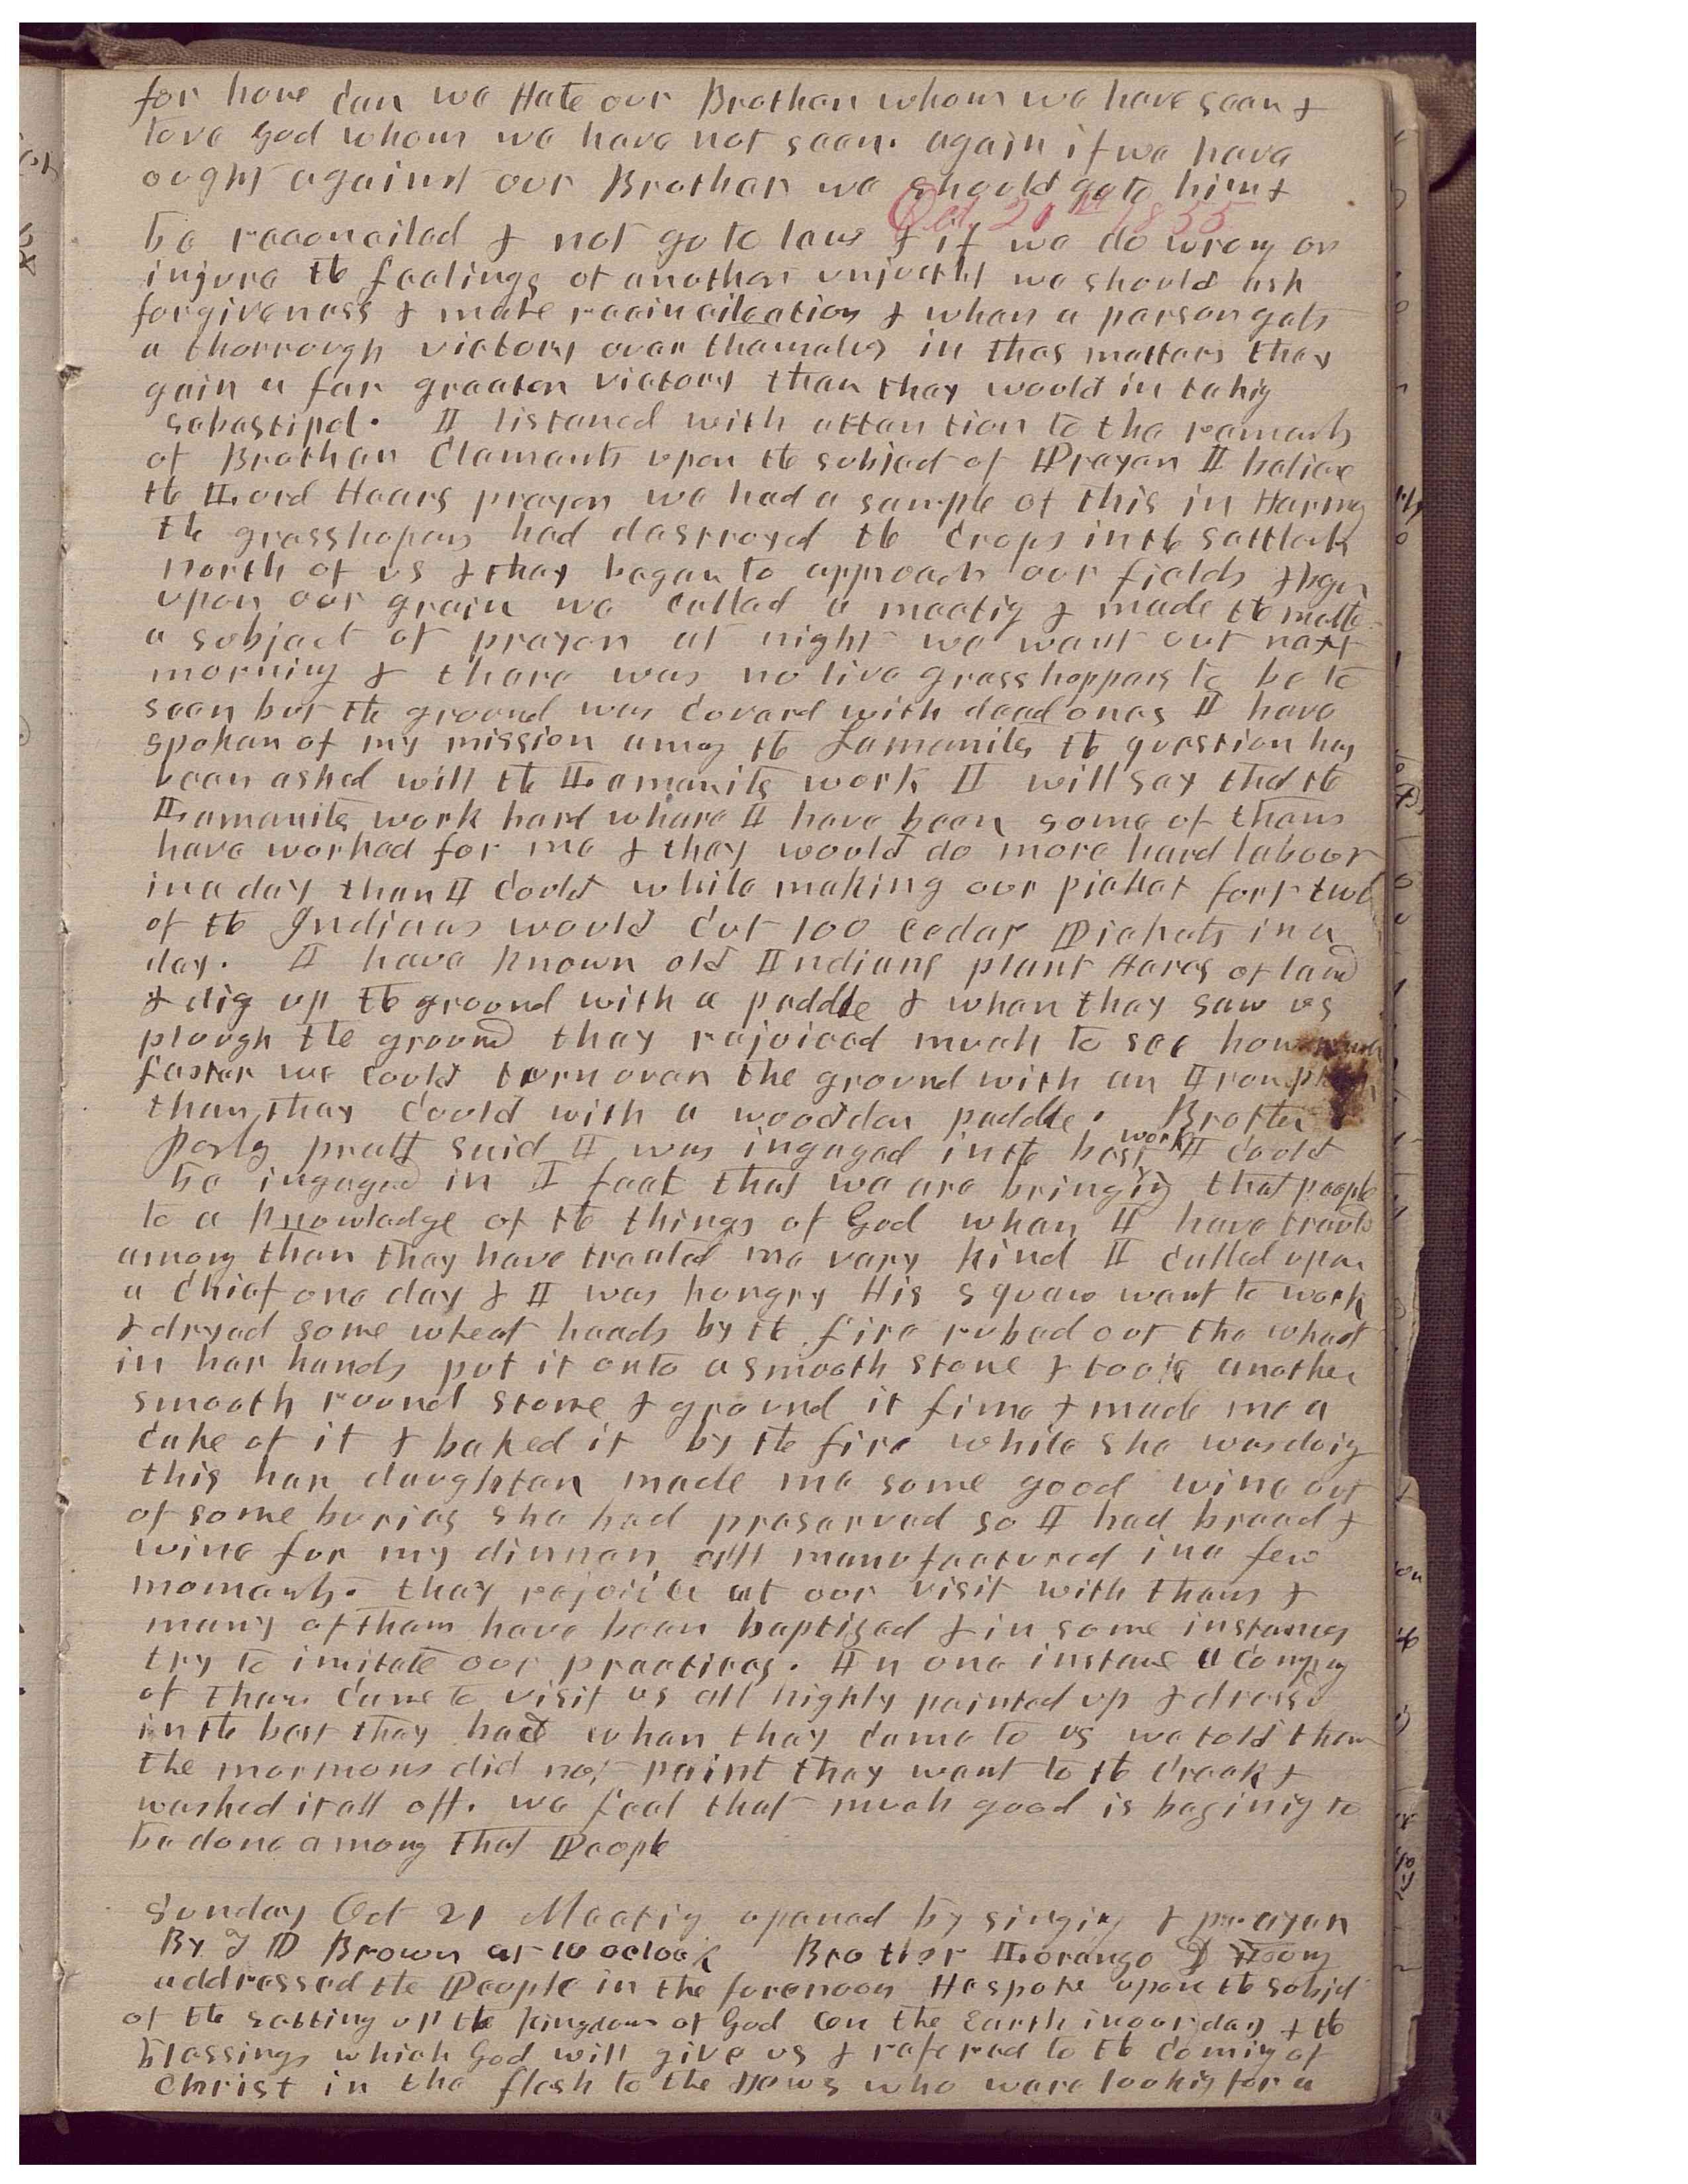 for how can we Hate our Brother whom we have seen &
love God whom we have not seen. again if we have
ought against our Brother we should go to him &
Oct. 20th 1855
be reconciled & not go to law & if we do wrong or
injure the feelings of another unjustly we should ask
forgiveness & make reconcileation & when a person gets
a thorrough victory over themselvs in thes matters they
gain a far greater victory than they would in takig
sebastipol. I listened with attention to the remarks
of Brother Clements upon the subject of Prayer I believe
the Lord Hears prayer we had a sample of this in Harmny
the grasshopers had destroyed the crops in the settlmts
north of us & they began to approach our fields & begn
upon our grain we called a meetig & made the matte
a subject of prayer at night we went out next
morning & there was no live grasshoppers to be to
seen but the ground was coverd with dead ones I have
spoken of my mission amog the Lamanites the question has
been asked will the Lamanits work I will say that the
Lamanites work hard where I have been some of them
have worked for me & they would do more hard labour
in a day than I could while making our picket fort two
of the Indians would cut 100 cedar Pickets in a
day. I have known old Indians plant Hares of land
& dig up the ground with a paddle & when they saw us
plough the ground they rejoiced much to see how much
faster we could turn over the ground with an Iron plough
than they could with a woodden paddle. Brother
Parly pratt said I was ingaged in the best work I could
be ingaged in I feel that we are bringing that people
to a knowledge of the things of God when I have traveld
among them they have treated me very kind I called upon
a chief one day & I was hungry His squaw went to work
& dryed some wheat heads by the fire rubed out the wheat
in her hands put it onto a smooth stone & took another
smooth round stone & ground it fine & made me a
cake of it & baked it by the fire while she was doig
this her daughter made me some good wine out
of some buries she had preserved so I had bread &
wine for my dinner all manufactured in a few
moments. they rejoice at our visit with them &
many of them have been baptised & in some instances
try to imitate our practices. In one instance a compny
of them came to visit us all highly painted up & dressd
in the best they had when they came to us we told them
the mormons did not paint they went to the creek &
washed it all off. we feel that much good is beginig to
be done among that People
Sunday Oct 21 Meetig opened by singing & prayer
By J D Brown at 10 oclock Brother Lorenzo D Young
addressed the People in the forenoon He spoke upon the subjet
of the setting up the kingdom of God on the Earth in our day & the
blessings which God will give us & refered to the coming of
Christ in the flesh to the Jews who were lookig for a